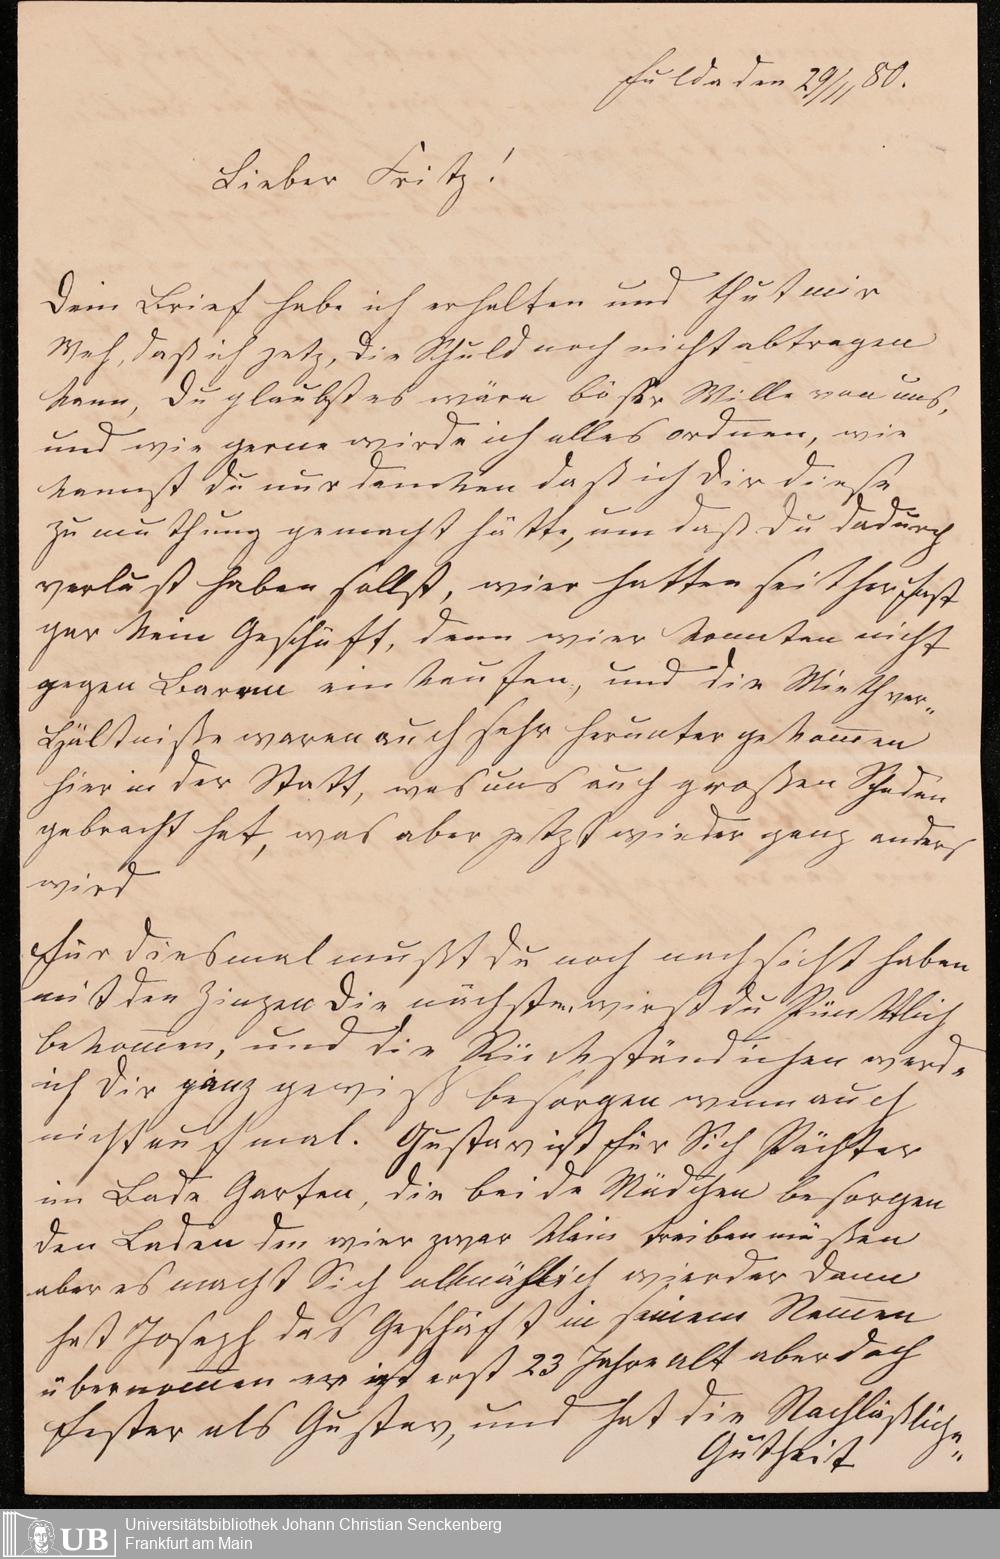 Fulda den 29/11 80.
Lieber Fritz!
Dein Brief habe ich erhalten und thut mir
Weh, daß ich jetz, die Schuld noch nicht abtragen
kann, Du glaubst es wäre bößer Wille von uns,
und wie gerne wirde ich alles ordnen, wie
kannst du nur dencken daß ich Dir diese
zu muthung gemacht hätte, um daß Du dadurch
verlust haben sollst, wier hatten seither fast
gar kein Geschäft, denn wier konnten nicht
gegen Baren einkaufen, und die Miethver-
hältniße waren auch sehr herunter gekommen
hier in der Statt, was uns auch großen Schaden
gebracht hat, was aber jetzt wieder ganz anders
wird
für diesmal mußt du noch nachsicht haben
mit den Zinzen die nächsten wirst du Pünktlich
bekommen, und die Rückständichen werde
ich Dir ganz gewiß besorgen wenn auch
nicht auf mal. Gustav ist für Sich Pächter
im Bade Garten, die beide Mädchen besorgen
den Laden den wier zwar klein treiben müßen
aber es macht Sich allmählich wierder dann
hat Joseph das Geschäft in seinem Namen
übernommen er ist erst 23 Jahre alt aber doch
fester als Gustav, und hat die Nachläßliche
Gutheit
UB
Universitätsbibliothek Johann Christian Senckenberg
Frankfurt am Main